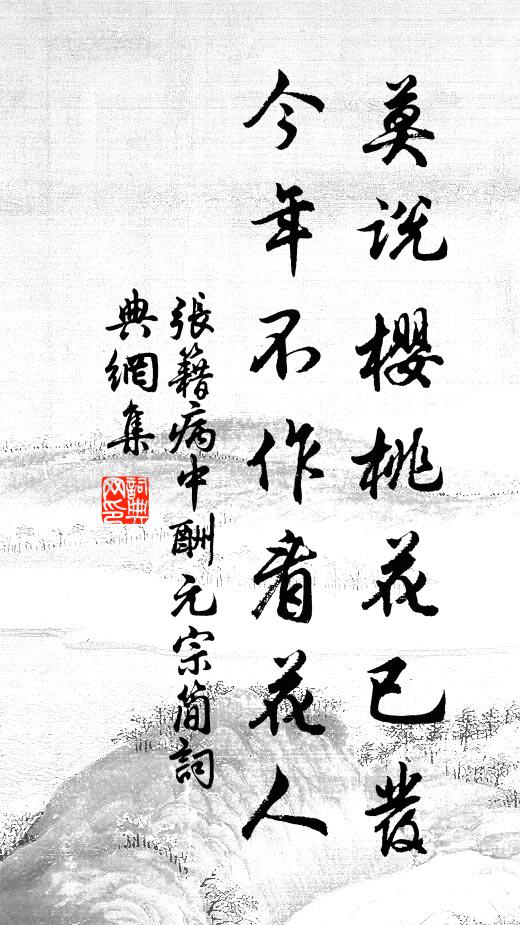 莫说樱桃花已发
今年不作看花人
張籍病中酬元宗简詞
典網集
詞典
网印